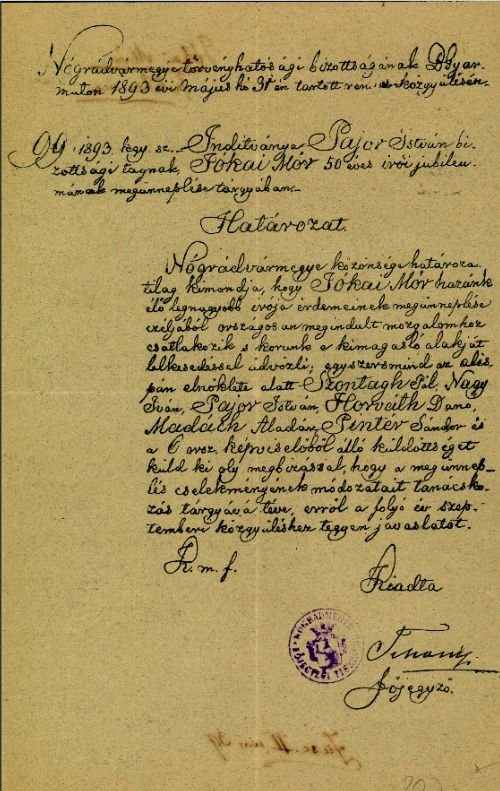 Nógrádvármegye törvényhatósági bizottságának B.Gyar-
maton 1893 évi május hó 31 én tartott rendes közgyűlésén.
99. 1893. kgy. sz. Indítványa Pajor István bi-
zottsági tagnak, Jókai Mór 50 éves irói jubileu-
mának megünneplése tárgyában.-
Határozat.
Nógrádvármegye közönsége határoza-
tilag kimondja, hogy Jókai Mór hazánk
élő legnagyobb irója érdemeinek megünneplése
czéljából országosan megindult mozgalomhoz
csatlakozik s korunk e kimagasló alakját
lelkesedéssel üdvözli; egyszersmind az alis-
pán elnöklete alatt Szontágh Pál, Nagy
Iván, Pajor István, Horváth Danó,
Madách Aladár, Pintér Sándor és
a 6 orsz. képviselőből álló küldöttséget
küld ki oly megbizással, hogy a megünnep-
lés cselekményének módozatait tanácsko-
zás tárgyává téve, erről a folyó év szep-
temberi közgyűléshez tegyen javaslatot.
K. m. f.
Kiadta
NÓGRÁDMEGYE
főjegyző.